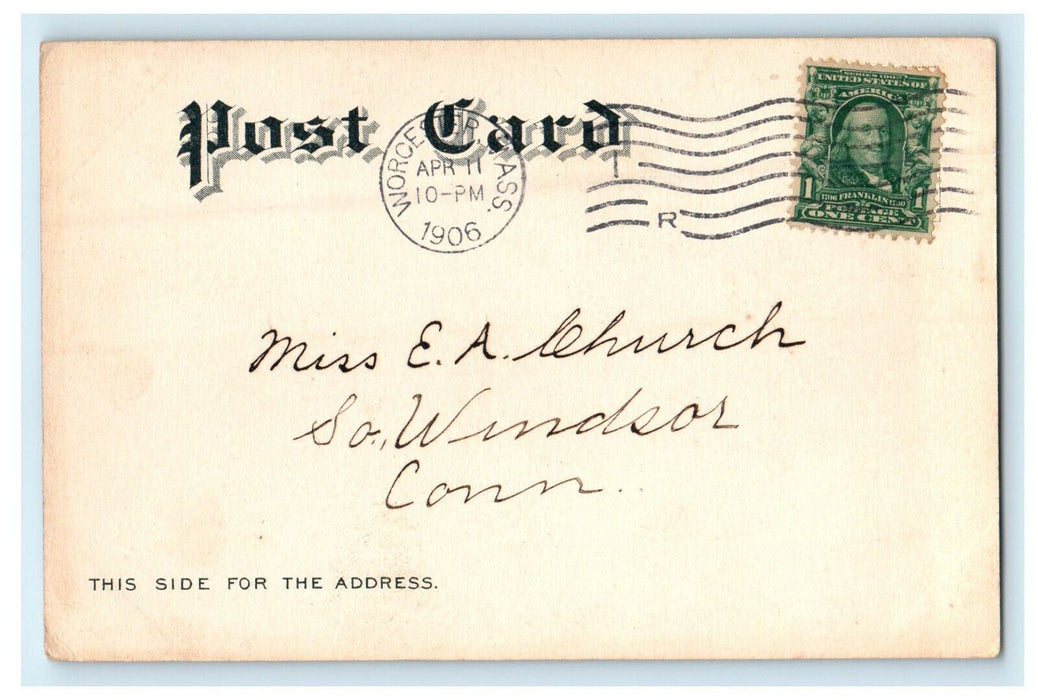 Post Card
WORCESTER, MASS.
APR 11
10-PM
1906
R
SERIES 1902
UNITED STATES OF
AMERICA
1706 FRANKLIN 1790
POSTAGE
1 ONE CENT 1
Miss E. A. Church
So, Windsor
Conn.
THIS SIDE FOR THE ADDRESS.